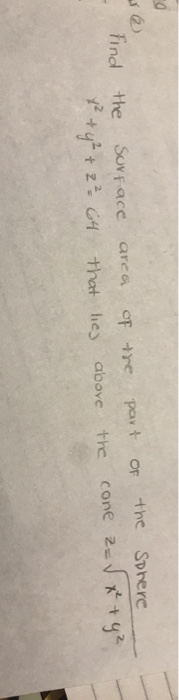 6)
Find the surface area of the part of the sphere
x² + y² + z² = 64 that lies above the cone z = √x² + y²